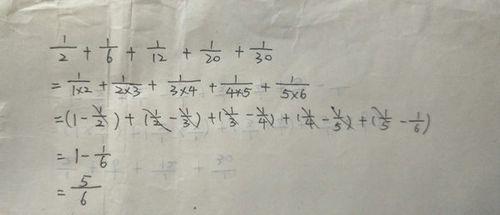 1/2 + 1/6 + 1/12 + 1/20 + 1/30
= 1/1×2 + 1/2×3 + 1/3×4 + 1/4×5 + 1/5×6
= (1 - 1/2) + (1/2 - 1/3) + (1/3 - 1/4) + (1/4 - 1/5) + (1/5 - 1/6)
= 1 - 1/6
= 5/6